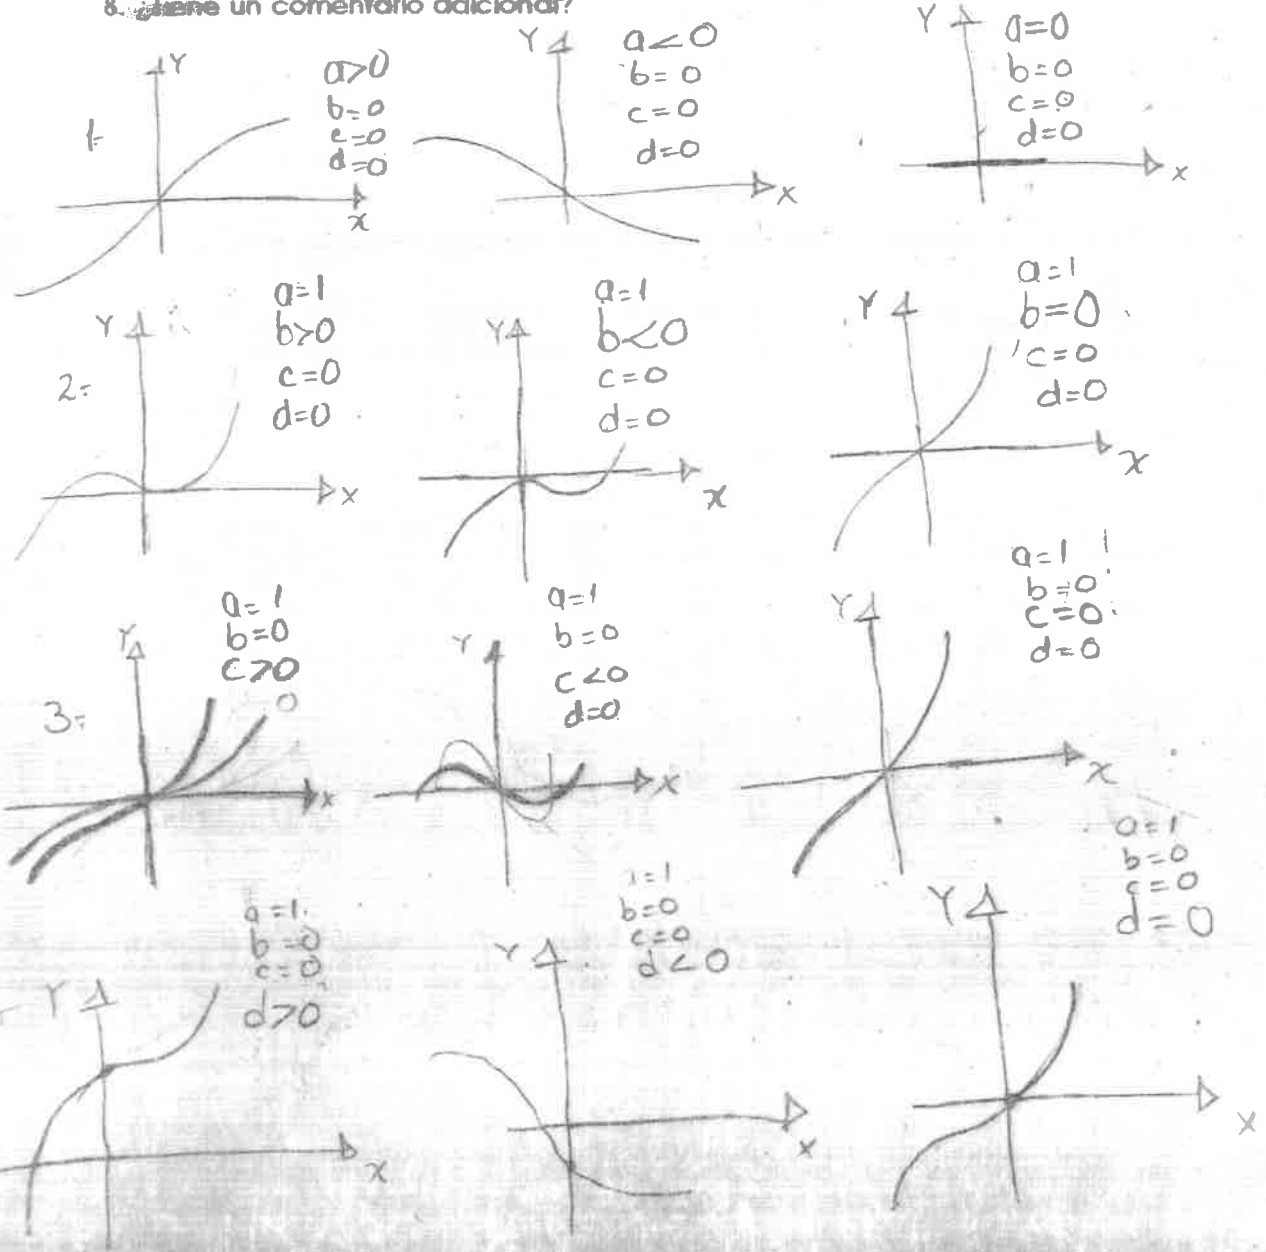 8. ¿Tiene un comentario adicional?
1-
Y
x
a>0
b=0
c=0
d=0
Y
x
a<0
b=0
c=0
d=0
Y
x
a=0
b=0
c=0
d=0
2-
Y
x
a=1
b>0
c=0
d=0
Y
x
a=1
b<0
c=0
d=0
Y
x
a=1
b=0
c=0
d=0
3-
Y
x
a=1
b=0
c>0
Y
x
a=1
b=0
c<0
d=0
Y
x
a=1
b=0
c=0
d=0
Y
x
a=1
b=0
c=0
d>0
Y
x
=1
b=0
c=0
d<0
Y
x
a=1
b=0
c=0
d=0